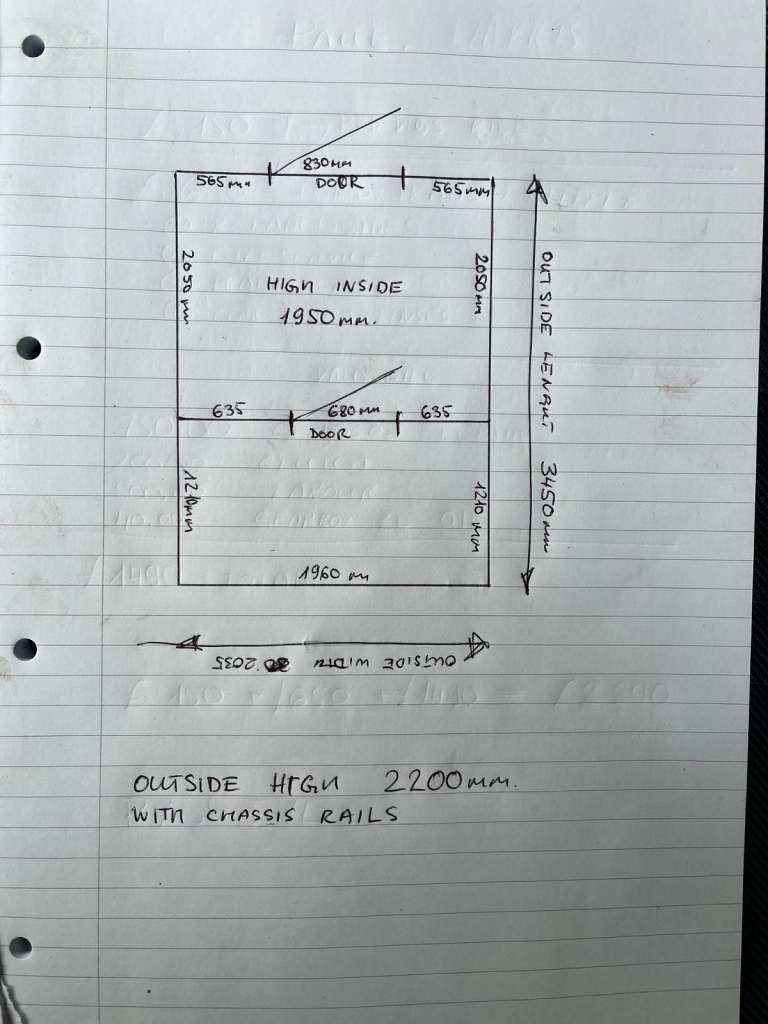 830mm
565mm DOOR 565mm
2050 mm
2050mm
HIGH INSIDE
1950mm.
OUTSIDE LENGHT 3450mm
635 680mm 635
DOOR
1210mm
1210 mm
1960 m
OUTSIDE WIDTH 2035
OUTSIDE HIGH 2200mm.
WITH CHASSIS RAILS